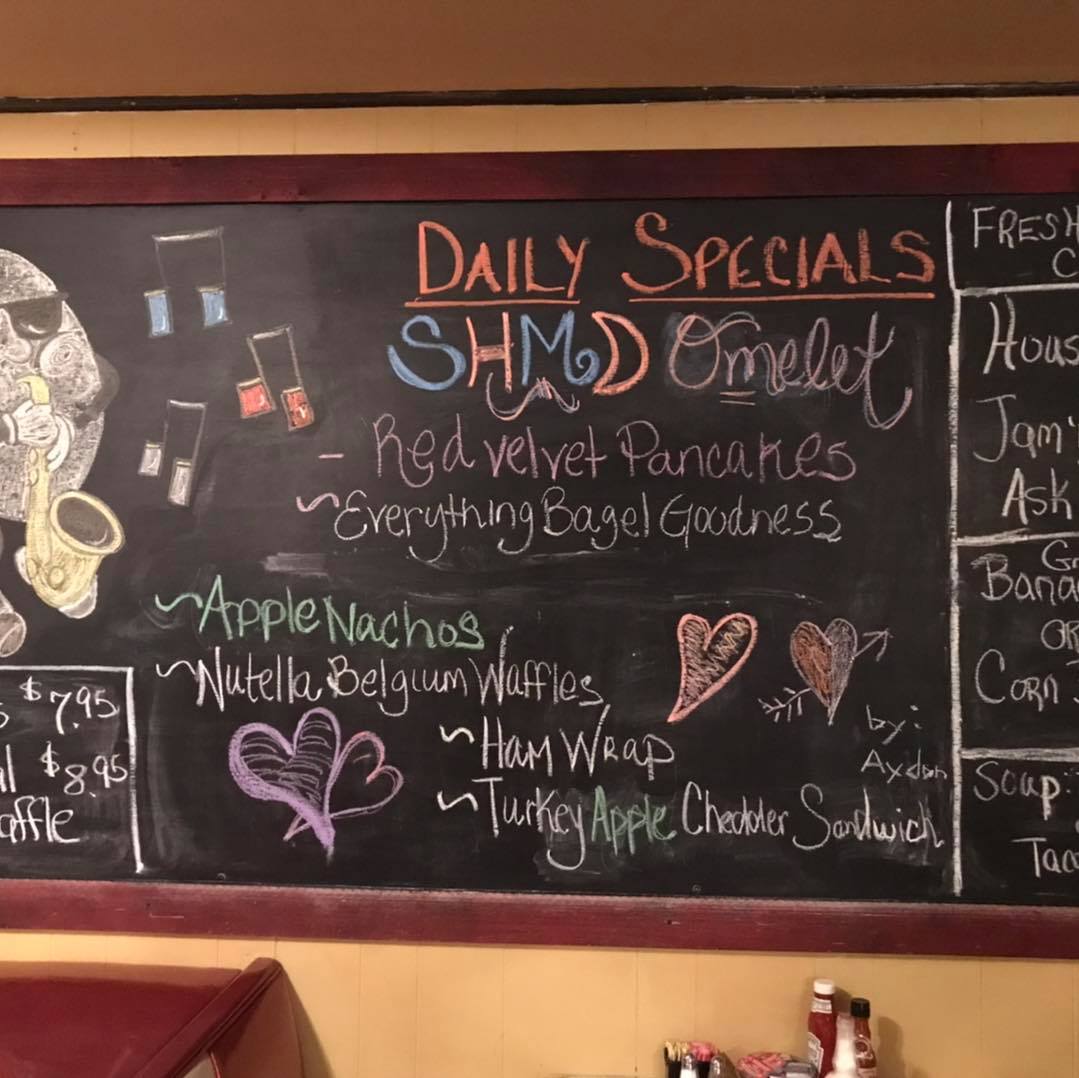 DAILY SPECIALS
SHMD Omelet
- Red velvet Pancakes
~ Everything Bagel Goodness
~ Apple Nachos
~ Nutella Belgium Waffles
~ Ham Wrap
~ Turkey Apple Cheddler Sandwich
by:
Aydan
$7.95
$8.95
affle
FRESH
C
Hous
Jam'
Ask
Gr
Bana
OR
Corn
Soup
Tac